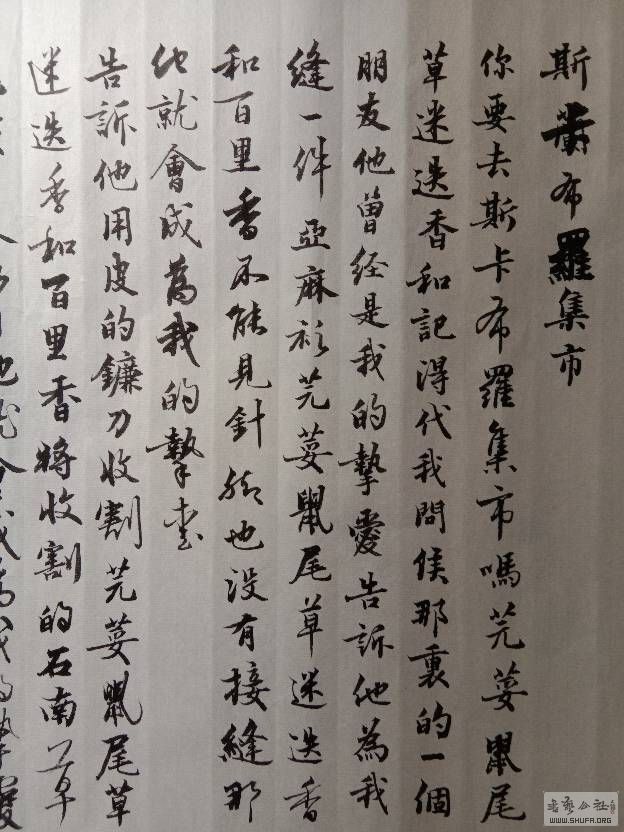 斯布羅集市
你要去斯卡布羅集市嗎芫荽鼠尾
草迷迭香和記得代我問候那裏的一個
朋友他曾经是我的摯愛告訴他為我
縫一件亞麻衫芫荽鼠尾草迷迭香
和百里香不能見針腳也沒有接縫那
他就會成為我的摯爱
告訴他用皮的鐮刀收割芫荽鼠尾草
迷迭香和百里香將收割的石南草
WWW.SHUFA.ORG